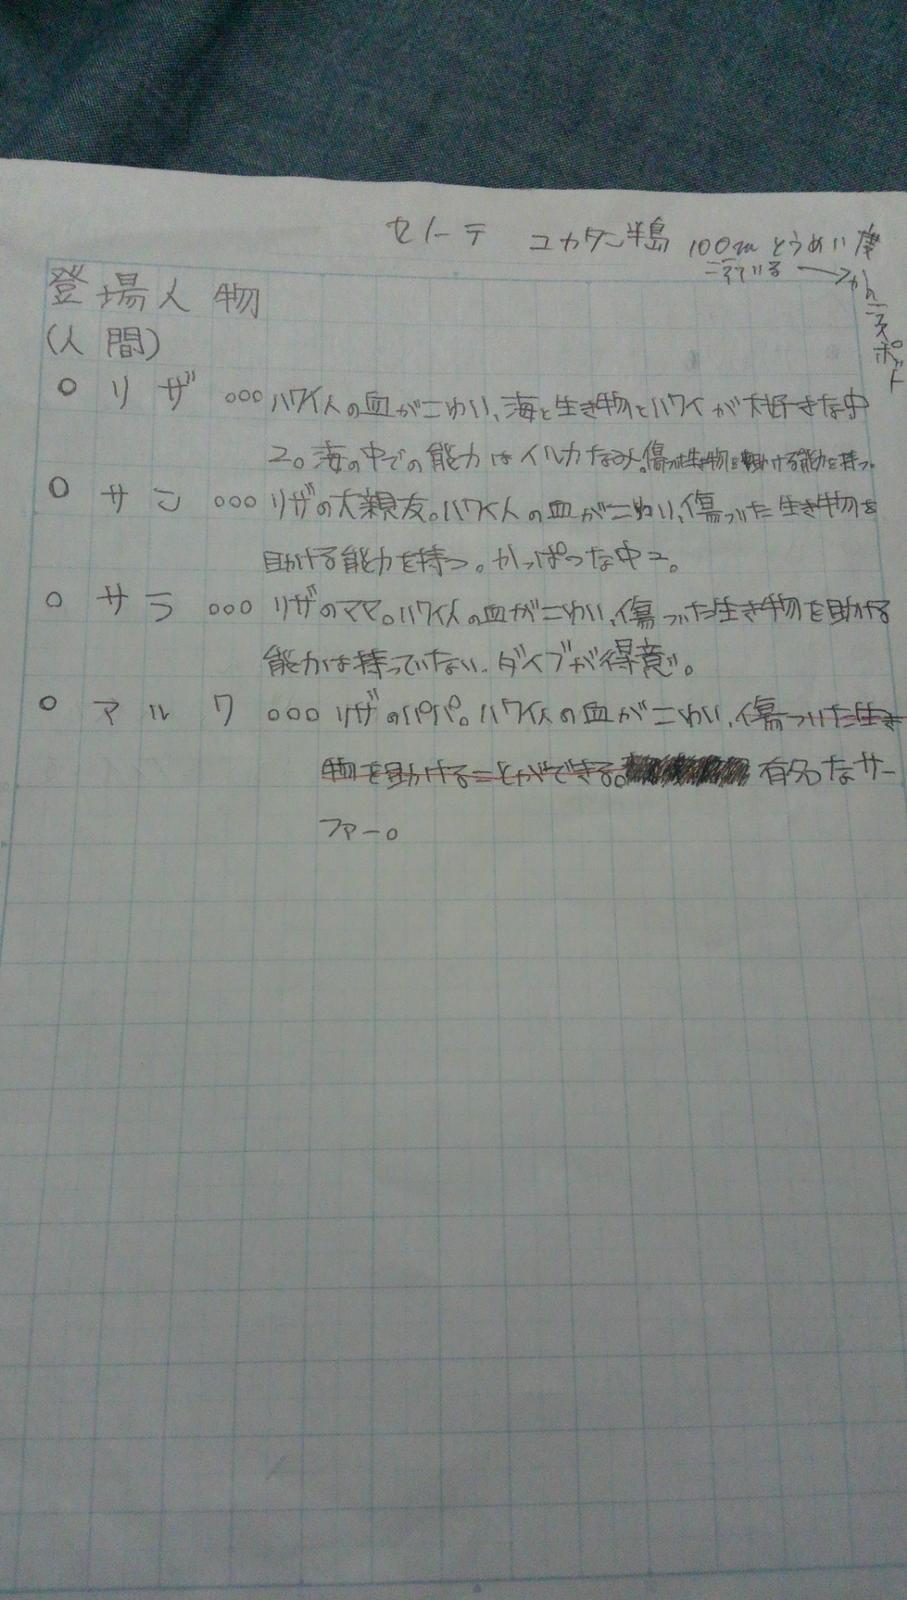 セノーテ ユカタン半島 100m とうめい度
登場人物
(人間)
○ リザ ○○○ ハワイ人の血がこわい、海と生き物とハワイが大好きな中
2。海の中での能力はイルカなみ。傷ついた生き物を助ける能力を持つ。
○ サン ○○○ リザの大親友。ハワイ人の血がこわい、傷ついた生き物を
助ける能力を持つ。かっぱつな中2。
○ サラ ○○○ リザのママ。ハワイ人の血がこわい、傷ついた生き物を助ける
能力は持っていない。ダイブが得意。
○ マルク ○○○ リザのパパ。ハワイ人の血がこわい、傷ついた生き
物を助けることができる。有名なサー
ファー。